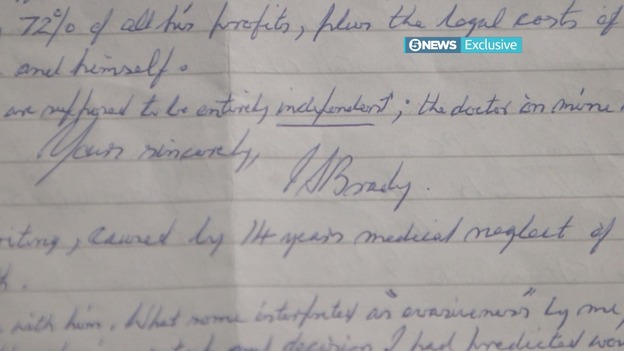 72% of all his profits, plus the legal costs of
5 NEWS Exclusive
and himself.
are supposed to be entirely independent; the doctor in mine
Yours sincerely,
I S Brady.
writing, caused by 14 years medical neglect of
with him. What some interpreted as "evasiveness" by me,
and decision I had predicted